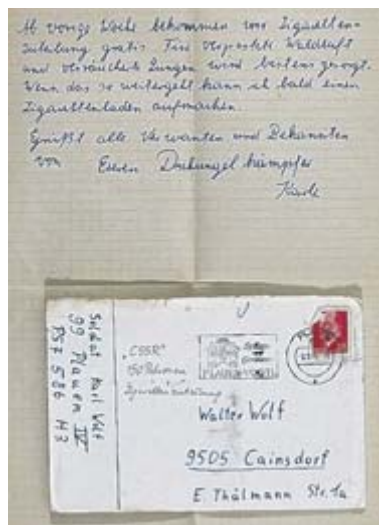 Ab vorige Woche bekommen wir Zigaretten-
zuteilung gratis. Für verpestete Waldluft
und verräucherte Lungen wird bestens gesorgt.
Wenn das so weitergeht kann ich bald einen
Zigarettenladen aufmachen.
Grüßt alle Verwanten und Bekannten
von Euren Dschungelkämpfer
Soldat Karl Wolf
99 Plauen IV
PSF 586 H3
"CSSR"
PLAUEN
Walter Wolf
9505 Cainsdorf
E. Thälmann Str. 1a